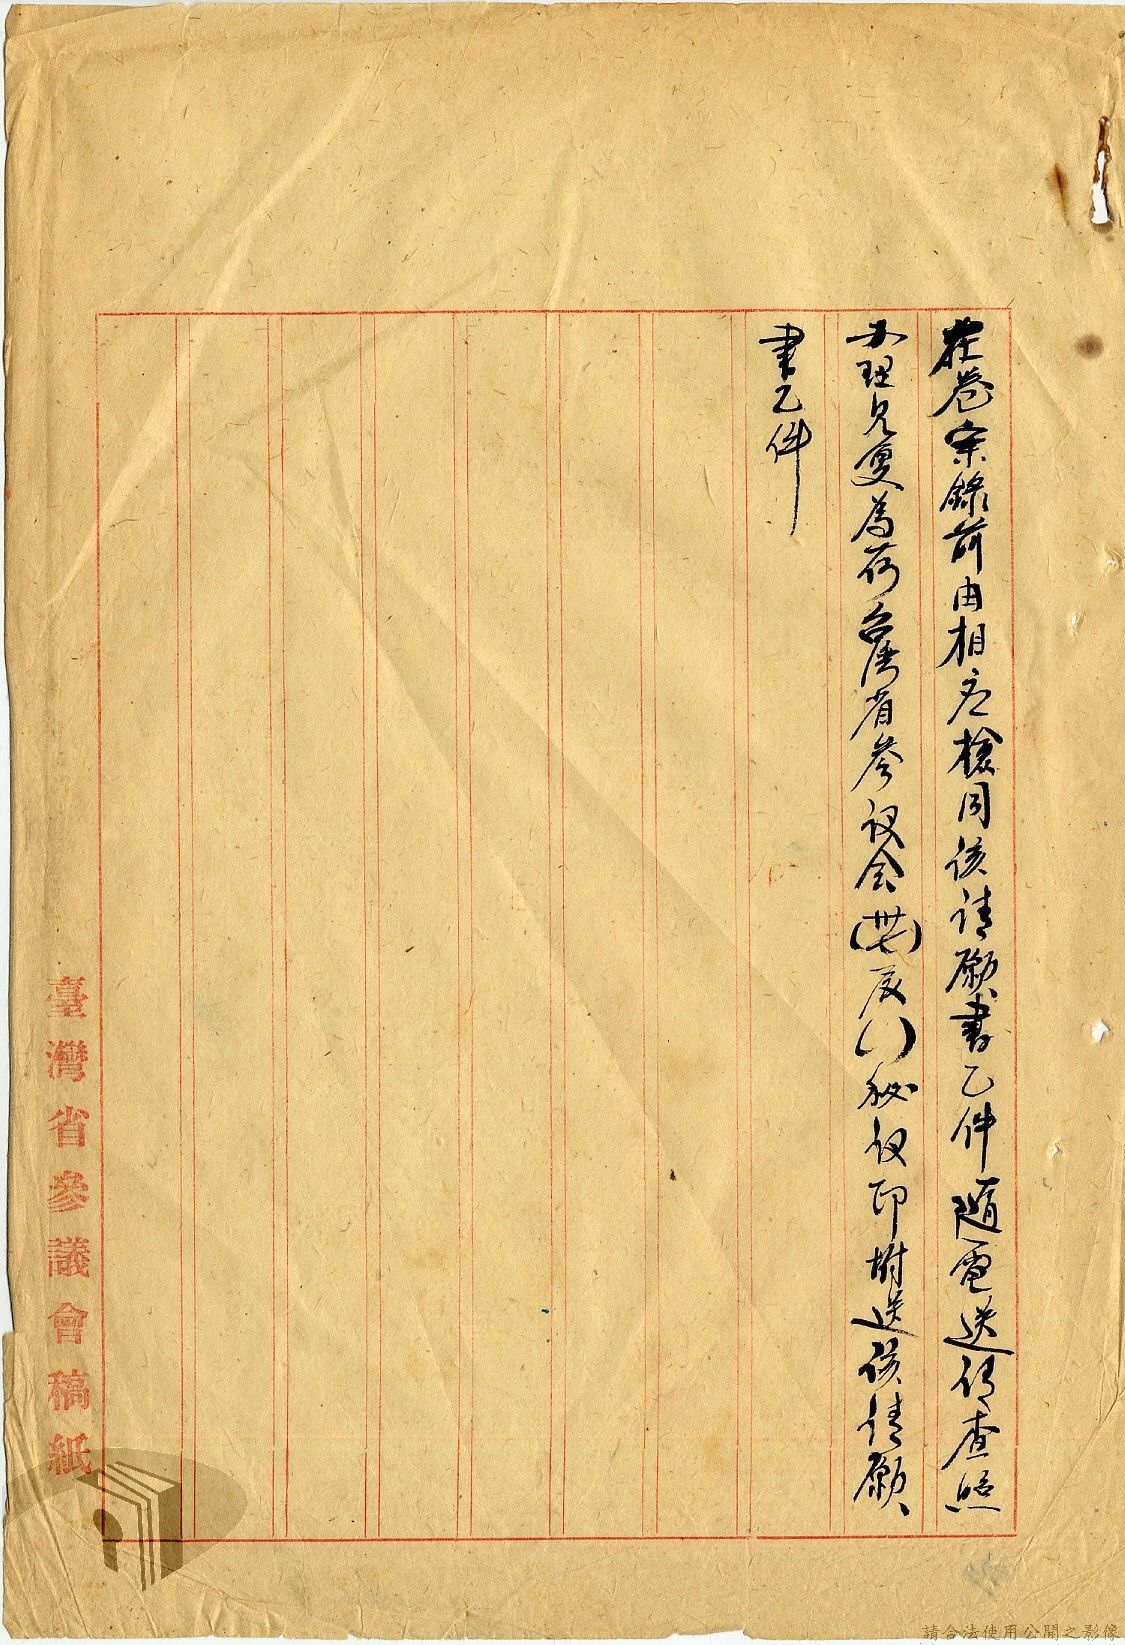 在卷案錄前由相应檢同該請願書乙件隨電送請查照
办理見复為荷台灣省參议会(卅七)辰()秘议印附送該請願
書乙件
臺灣省參議會稿紙
請合法使用公開之影像